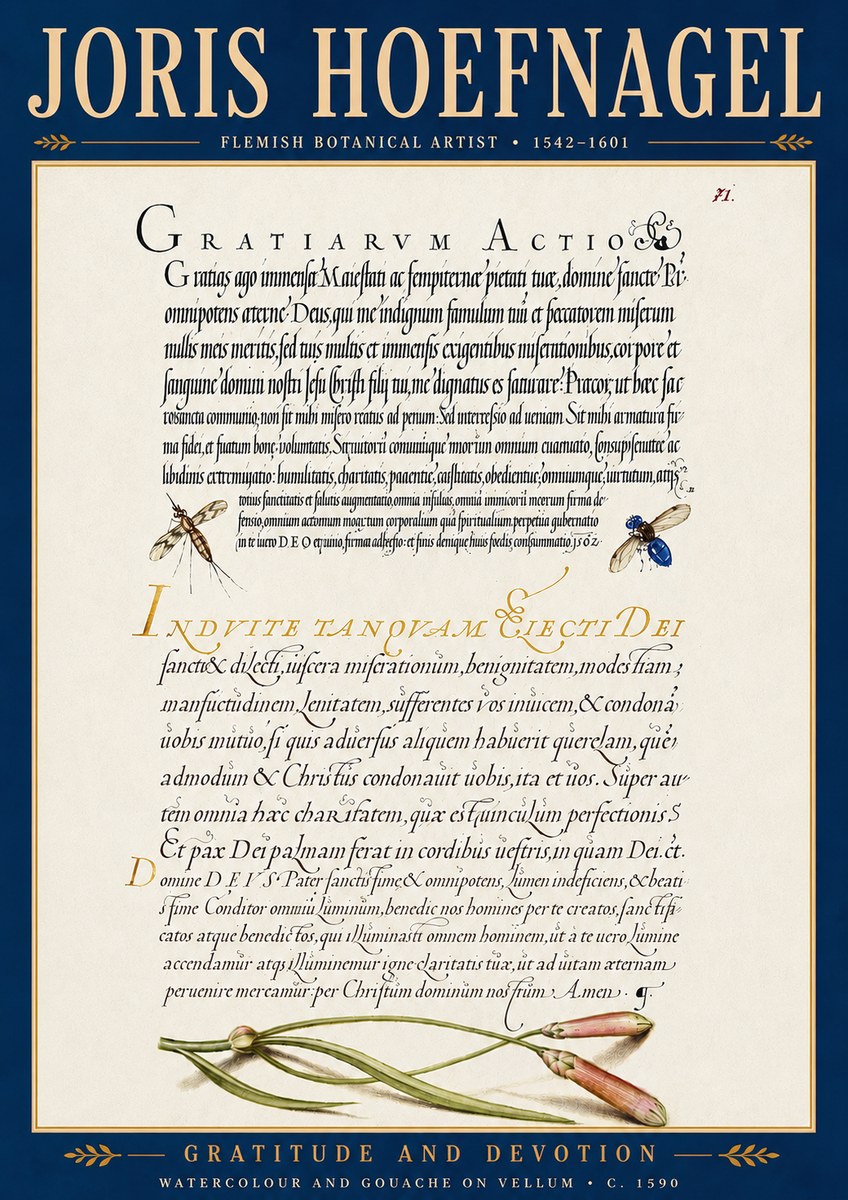 JORIS HOEFNAGEL
FLEMISH BOTANICAL ARTIST • 1542–1601
71.
GRATIARVM ACTIO
Gratias ago immensæ Maiestati ac sempiternæ pietati tuæ, domine sancte
omnipotens æterne Deus, qui me indignum famulum tui et peccatorem miserum
nullis meis meritis, sed tuis multis et immensis exigentibus miserationibus, corpore et
sanguine domini nostri Jesu Christi filij tui, me dignatus es Præcor, ut hæc sac
communio, non sit mihi misero reatus ad penam: Sed ad ueniam. Sit mihi armatura fir-
ma fidei, et bonę voluntatis, omnium
libidinis humilitatis, charitatis, castitatis, obedientiæ, omniumque uirtutum,
totius sanctitatis et salutis augmentatio, omnia omniū firma de-
fensio, omnium corporalium quā spiritualium, perpetua gubernatio
in te uero DEO et finis denique huis 1562
INDVITE TANQVAM ElECTI DEI
sancti & dilecti, uiscera miserationum, benignitatem, modestiam,
mansuetudinem, Lenitatem, sufferentes vos inuicem, & condonā
uobis mutuo, si quis aduersus aliquem habuerit querelam, quē
admodum & Christus condonauit uobis, ita et uos. Super au-
tem omnia hæc charitatem, quæ est uinculum perfectionis.
Et pax Dei palmam ferat in cordibus uestris, in quam Dei. ct.
Domine DEVS Pater sanctissime & omnipotens, Lumen indeficiens, & beati
ssime Conditor omniū Luminum, benedic nos homines per te creatos, sanctifi-
catos atque benedictos, qui illuminasti omnem hominem, ut à te uero Lumine
accendamur atqʒ illuminemur igne claritatis tuæ, ut ad uitam æternam
peruenire mereamur: per Christum dominum nostrum Amen.
GRATITUDE AND DEVOTION
WATERCOLOUR AND GOUACHE ON VELLUM • C. 1590